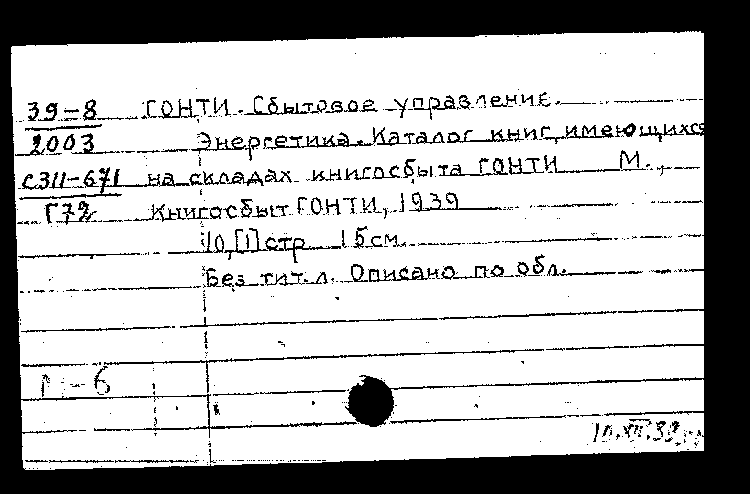 39-8 ГОНТИ. Сбытовое управление.
2003 Энергетика. Каталог книг, имеющихся
С311-671 на складах книгосбыта ГОНТИ М.,
Г72 Книгосбыт ГОНТИ, 1939
10,[1] стр 15 см.
Без тит. л. Описано по обл.
-6